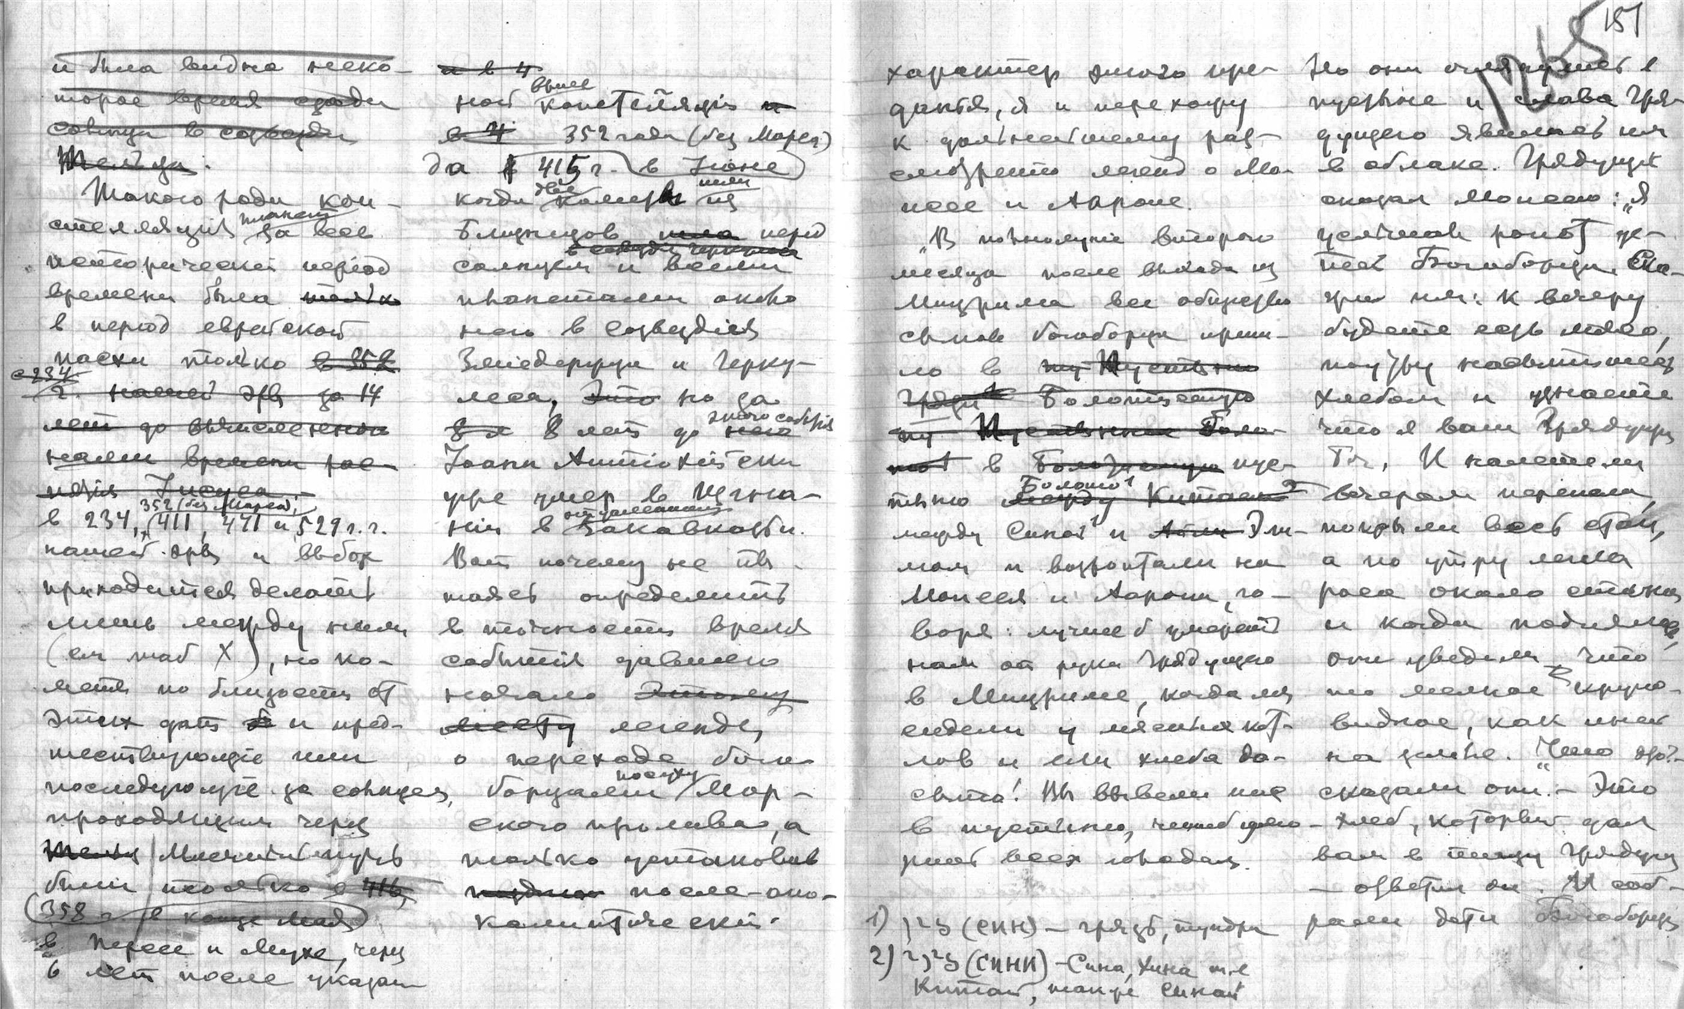 и была видна неко-
торое время сзади
солнца в созвезди
Тельца.
Такого рода кон-
стелляция планет за весь
исторический период
времени была только
в период еврейской
пасхи только в 352
с 234
г. нашей эры за 14
лет до вычисленного
нами времени рас-
пятия Іисуса
352 (без Марса),
в 234, 411, 471 и 529 г.г.
нашей эры и выбор
приходится делать
лишь между ними
(см таб X), но ко-
меты по близости от
этих дат и пред-
шествующие или
последующие за солнцем,
проходящим через
Млечный путь
были только в 416,
(358 г. в конце мая)
в Персее и Мухе, через
6 лет после указан-
и в 4
ной выше констеляции и
в 4 352 года (без Марса)
да 415 г. (в Іюне)
когда две кометы шли из
Близнецов шла перед
солнцем и всеми
планетами около
него в созвездиях
Змиедержца и Герку-
леса, Это но за
8 лет до него этого события
Іоанн Антіохійский
уже умер в Изгна-
нии в Закавказьи.
Вот почему не пы-
таясь определить
в точности время
события давшего
начало этому
месту легенде,
о переходе бого-
борцами посуху Мор-
ского пролива, а
только установив
после-апо-
калиптический
151
характер этого пре-
данья, я и перехожу
к дальнейшему рас-
смотрению легенд о Мо-
исее и Аароне.
„В полнолуніе второго
месяца после выхода из
Мицрима все общество
сынов богоборца приш-
ло в Пустыню
грязи Болотистую
Пустынная Боло-
в Болотистую пус-
тыню Болотной между Китаем
между Синай и Эли-
мом и возроптали на
Моисея и Аарона, го-
воря: лучше б умереть
нам от руки Грядущего
в Мицриме, когда мы
сидели у мясных кот-
лов и ели хлеба до-
сыта! Вы вывели нас
в пустыню, чтоб умо-
рить всех голодом.
1) (СИН) – грязь, тундра
2) (СИНИ) – Сина, Хина т.е
Китай, также Синай
Но они оглянулись в
пустыне и слава Гря-
дущего явилась им
в облаке. Грядущий
сказал Моисею: „Я
услышал ропот де-
тей Богоборца. Ска-
жи им: к вечеру
будете есть мясо,
поутру насытитесь
хлебом и узнаете
что я ваш Грядущий
Бог, И налетели
вечером перепела,
покрыли весь стан,
а по утру легла
роса около стана
и когда поднялась,
они увидели что
то мелкое круп-
видное, как иней
на земле. „Что это?-
сказали они. – Это
хлеб, который дал
вам в пищу Грядущий
– ответил он. И соб-
рали дети Богоборца